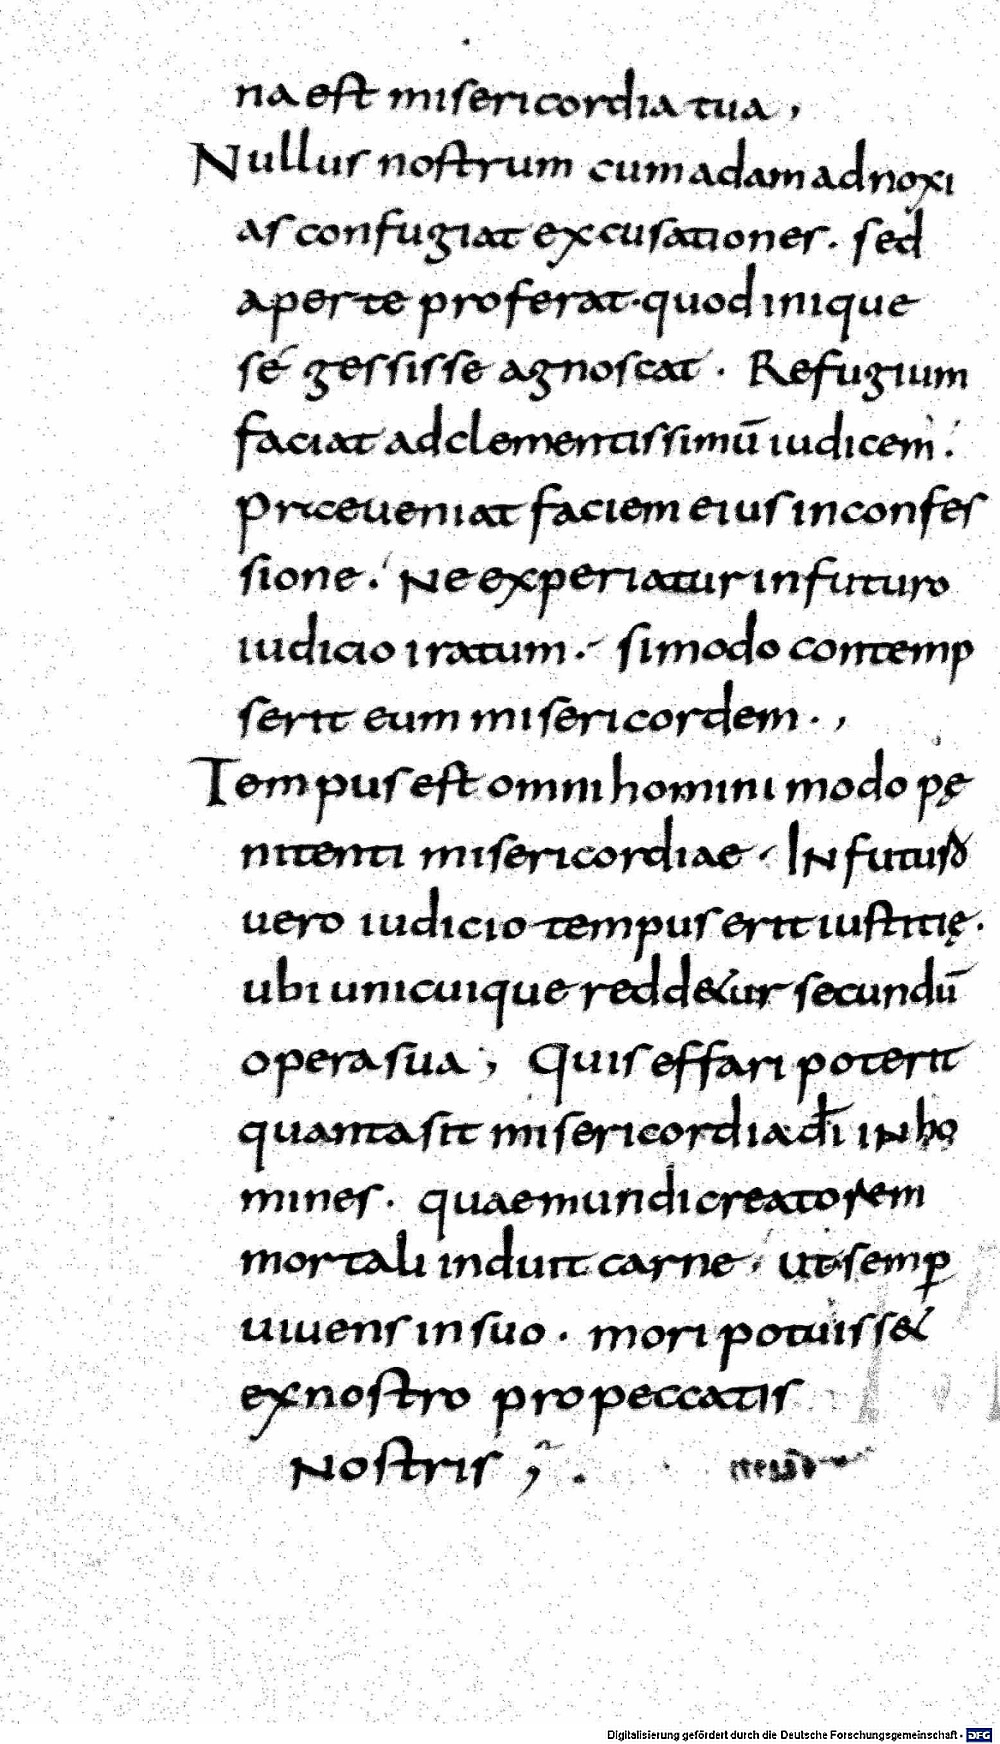 na est misericordia tua,
Nullus nostrum cum adam ad noxi
as confugiat excusationes. sed
aperte proferat. quod inique
sé gessisse agnoscat. Refugium
faciat ad clementissimū iudicem.
Praeveniat faciem eius in confes
sione. Ne experiatur in futuro
iudicio iratum. si modo contemp
serit eum misericordem.,
Tempus est omni homini modo pę
nitenti misericordiae. In futuro
uero iudicio tempus erit iustitię.
ubi unicuique redd&ur secundū
opera sua; Quis effari poterit
quanta sit misericordia dī in ho
mines. quae mundi creatorem
mortali induit carne. ut semp̄
uiuens in suo. mori potuiss&
ex nostro pro peccatis
nostris;.
Digitalisierung gefördert durch die Deutsche Forschungsgemeinschaft - DFG